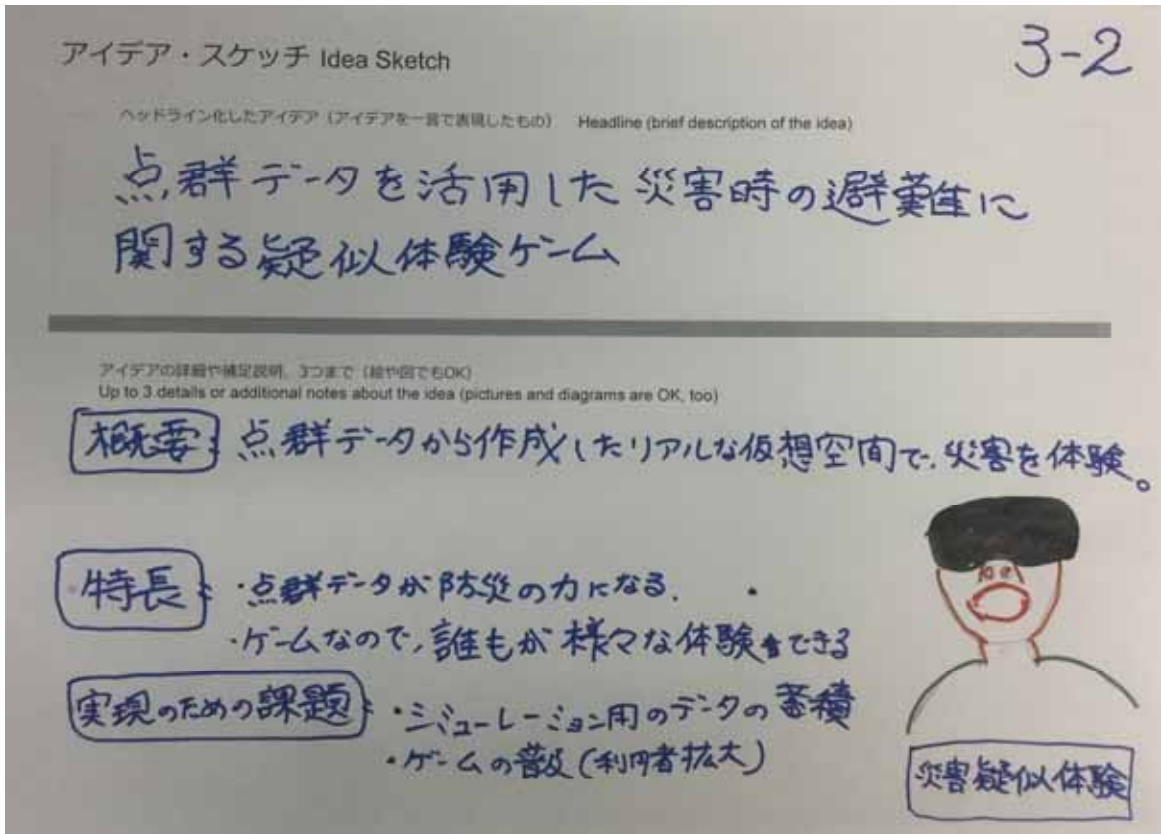 アイデア・スケッチ Idea Sketch
3-2
ヘッドライン化したアイデア（アイデアを一言で表現したもの） Headline (brief description of the idea)
点群データを活用した災害時の避難に
関する疑似体験ゲーム
アイデアの詳細や補足説明、3つまで（絵や図でもOK）
Up to 3 details or additional notes about the idea (pictures and diagrams are OK, too)
概要: 点群データから作成したリアルな仮想空間で、災害を体験。
特長: ・点群データが防災の力になる.
・ゲームなので、誰もが様々な体験をできる
実現のための課題: ・シミューレーション用のデータの蓄積
・ゲームの普及(利用者拡大)
災害疑似体験